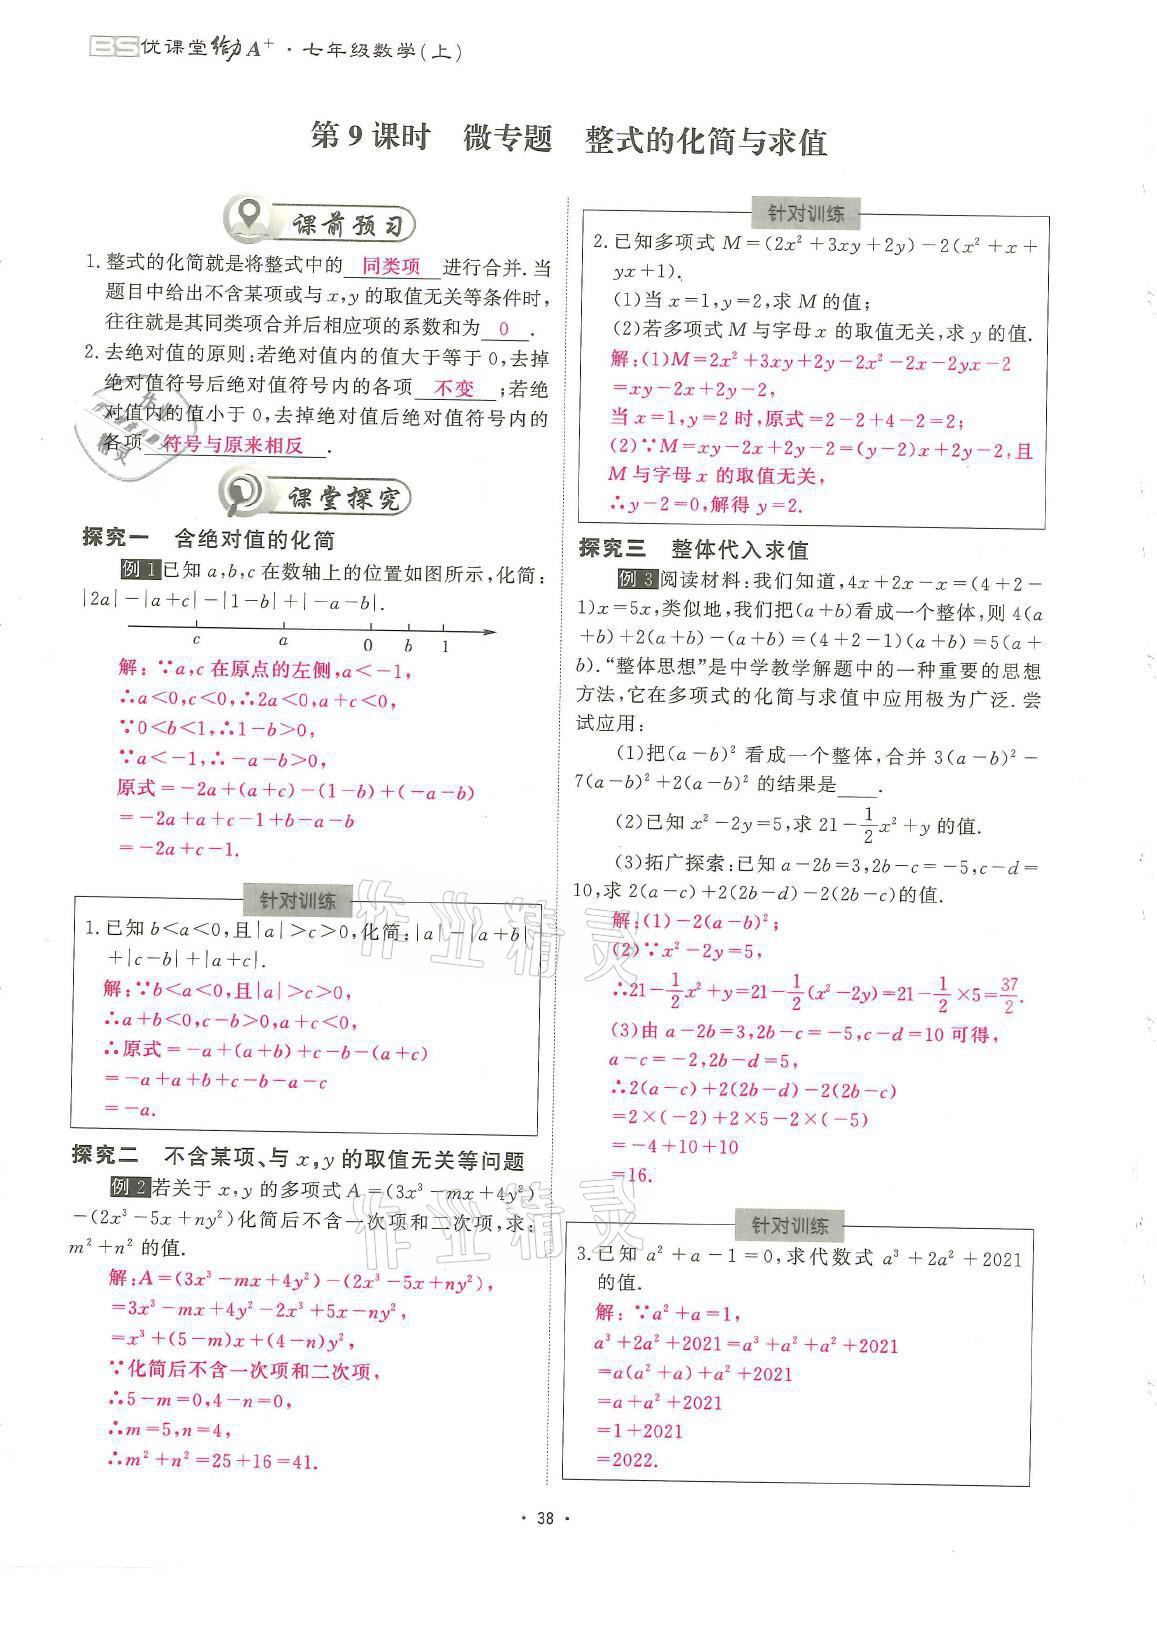 BS优课堂给力A⁺·七年级数学(上)
第9课时　微专题　整式的化简与求值
课前预习
1. 整式的化简就是将整式中的 同类项 进行合并.当
题目中给出不含某项或与x,y的取值无关等条件时,
往往就是其同类项合并后相应项的系数和为 0 .
2. 去绝对值的原则:若绝对值内的值大于等于0,去掉
绝对值符号后绝对值符号内的各项 不变 ;若绝
对值内的值小于0,去掉绝对值后绝对值符号内的
各项 符号与原来相反 .
课堂探究
探究一　含绝对值的化简
例1 已知a,b,c在数轴上的位置如图所示,化简:
|2a|-|a+c|-|1-b|+|-a-b|.
c a 0 b 1
解:∵a,c在原点的左侧,a<-1,
∴a<0,c<0,∴2a<0,a+c<0,
∵0<b<1,∴1-b>0,
∵a<-1,∴-a-b>0,
原式=-2a+(a+c)-(1-b)+(-a-b)
=-2a+a+c-1+b-a-b
=-2a+c-1.
针对训练
1. 已知b<a<0,且|a|>c>0,化简:|a|-|a+b|
+|c-b|+|a+c|.
解:∵b<a<0,且|a|>c>0,
∴a+b<0,c-b>0,a+c<0,
∴原式=-a+(a+b)+c-b-(a+c)
=-a+a+b+c-b-a-c
=-a.
探究二　不含某项、与x,y的取值无关等问题
例2 若关于x,y的多项式A=(3x³-mx+4y²)
-(2x³-5x+ny²)化简后不含一次项和二次项,求:
m²+n²的值.
解:A=(3x³-mx+4y²)-(2x³-5x+ny²),
=3x³-mx+4y²-2x³+5x-ny²,
=x³+(5-m)x+(4-n)y²,
∵化简后不含一次项和二次项,
∴5-m=0,4-n=0,
∴m=5,n=4,
∴m²+n²=25+16=41.
针对训练
2. 已知多项式M=(2x²+3xy+2y)-2(x²+x+
yx+1).
(1)当x=1,y=2,求M的值;
(2)若多项式M与字母x的取值无关,求y的值.
解:(1)M=2x²+3xy+2y-2x²-2x-2yx-2
=xy-2x+2y-2,
当x=1,y=2时,原式=2-2+4-2=2;
(2)∵M=xy-2x+2y-2=(y-2)x+2y-2,且
M与字母x的取值无关,
∴y-2=0,解得y=2.
探究三　整体代入求值
例3 阅读材料:我们知道,4x+2x-x=(4+2-
1)x=5x,类似地,我们把(a+b)看成一个整体,则4(a
+b)+2(a+b)-(a+b)=(4+2-1)(a+b)=5(a+
b).“整体思想”是中学教学解题中的一种重要的思想
方法,它在多项式的化简与求值中应用极为广泛.尝
试应用:
(1)把(a-b)²看成一个整体,合并3(a-b)²-
7(a-b)²+2(a-b)²的结果是____.
(2)已知x²-2y=5,求21-1/2x²+y的值.
(3)拓广探索:已知a-2b=3,2b-c=-5,c-d=
10,求2(a-c)+2(2b-d)-2(2b-c)的值.
解:(1)-2(a-b)²;
(2)∵x²-2y=5,
∴21-1/2x²+y=21-1/2(x²-2y)=21-1/2×5=37/2.
(3)由a-2b=3,2b-c=-5,c-d=10可得,
a-c=-2,2b-d=5,
∴2(a-c)+2(2b-d)-2(2b-c)
=2×(-2)+2×5-2×(-5)
=-4+10+10
=16.
针对训练
3. 已知a²+a-1=0,求代数式a³+2a²+2021
的值.
解:∵a²+a=1,
a³+2a²+2021=a³+a²+a²+2021
=a(a²+a)+a²+2021
=a+a²+2021
=1+2021
=2022.
·38·
作业精灵
作业精灵